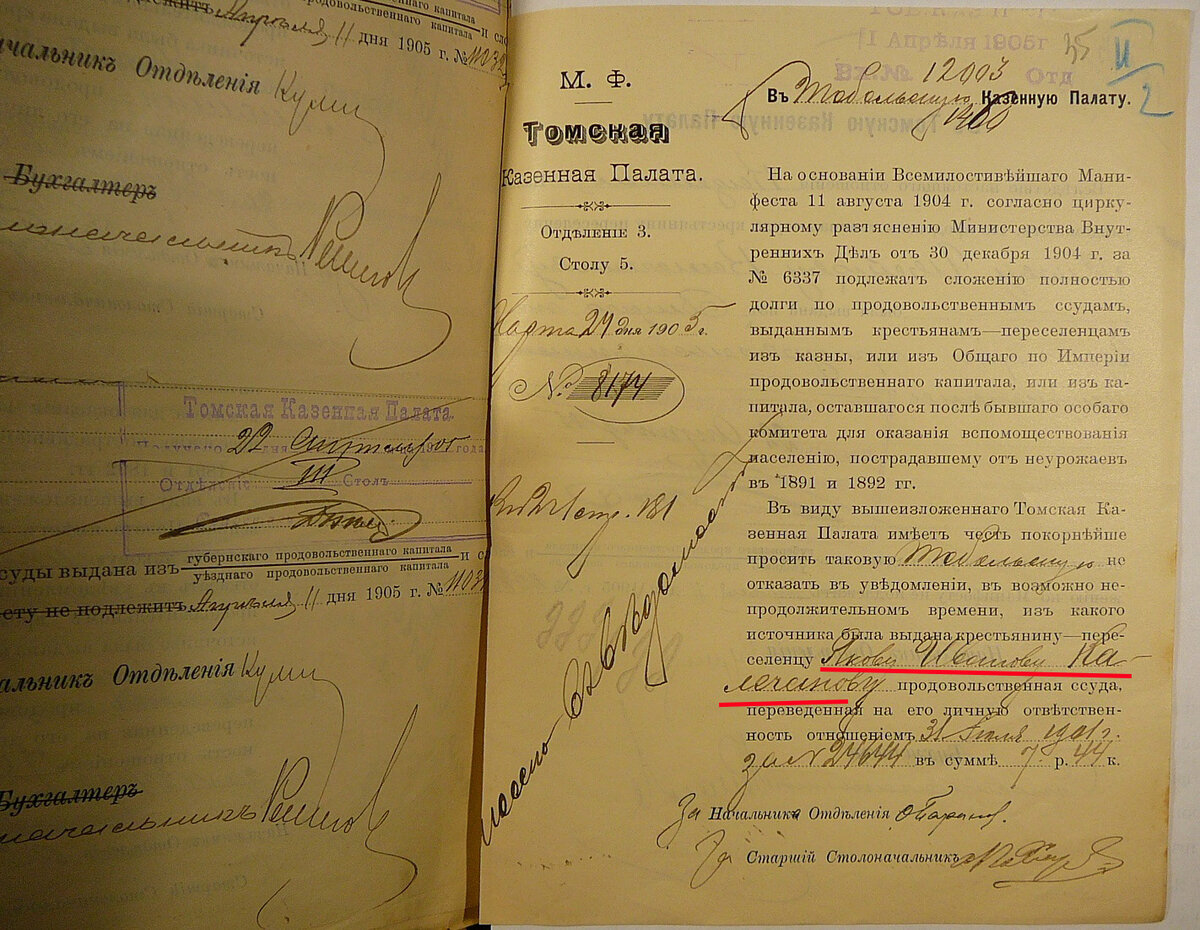 дня 1905 г. №
Начальникъ Отдѣленія
Бухгалтеръ
Томская Казенная Палата.
22 сентября
Отдѣленіе III Столъ
суды выдана изъ губернскаго продовольственнаго капитала
уѣзднаго продовольственнаго капитала
ету не подлежитъ Апрѣля 11 дня 1905 г. №
альникъ Отдѣленія
Бухгалтеръ
11 Апрѣля 1905г
Вх. № 12003 Отд
II/2
М. Ф.
Томская
Казенная Палата.
Отдѣленіе 3.
Столу 5.
Марта 24 дня 1905 г.
№ 8174
стр. 181
Въ Тобольскую Казенную Палату.
На основаніи Всемилостивѣйшаго Мани-
феста 11 августа 1904 г. согласно цирку-
лярному разъясненію Министерства Внут-
реннихъ Дѣлъ отъ 30 декабря 1904 г. за
№ 6337 подлежатъ сложенію полностью
долги по продовольственнымъ ссудамъ,
выданнымъ крестьянамъ—переселенцамъ
изъ казны, или изъ Общаго по Имперіи
продовольственнаго капитала, или изъ ка-
питала, оставшагося послѣ бывшаго особаго
комитета для оказанія вспомоществованія
населенію, пострадавшему отъ неурожаевъ
въ 1891 и 1892 гг.
Въ виду вышеизложеннаго Томская Ка-
зенная Палата имѣетъ честь покорнѣйше
просить таковую Тобольскую не
отказать въ увѣдомленіи, въ возможно не-
продолжительномъ времени, изъ какого
источника была выдана крестьянину—пере-
селенцу Якову Иванову Ка-
лачанову продовольственная ссуда,
переведенная на его личную отвѣтствен-
ность отношеніемъ 31 Іюля 1901 г.
за № 24644 въ суммѣ 7 р. 44 к.
За Начальника Отдѣленія
За Старшій Столоначальникъ